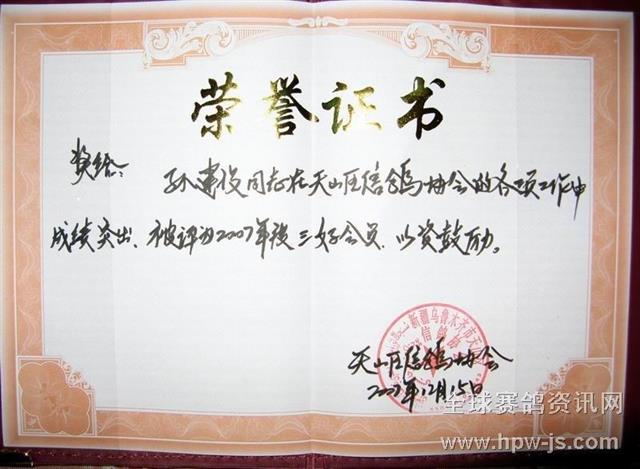 荣誉证书
奖给:
孙建设同志在天山区信鸽协会的各项工作中
成绩突出、被评为2007年度三好会员,以资鼓励。
新疆乌鲁木齐市天
信鸽协
天山区信鸽协会
2007年12月15日
全球赛鸽资讯网
www.hpw-js.com